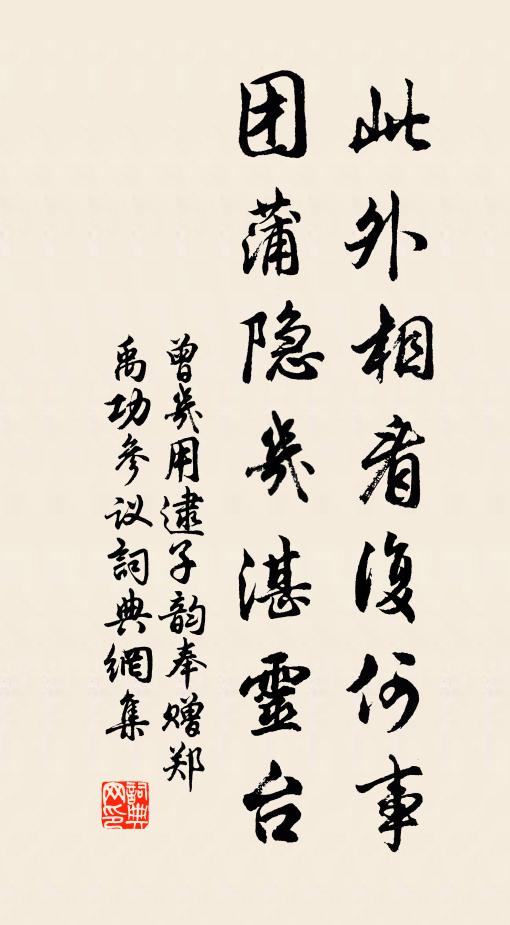 此外相看復何事
团蒲隐幾湛靈台
曾幾用逮子韵奉赠郑
禹功参议詞典網集
詞典网印